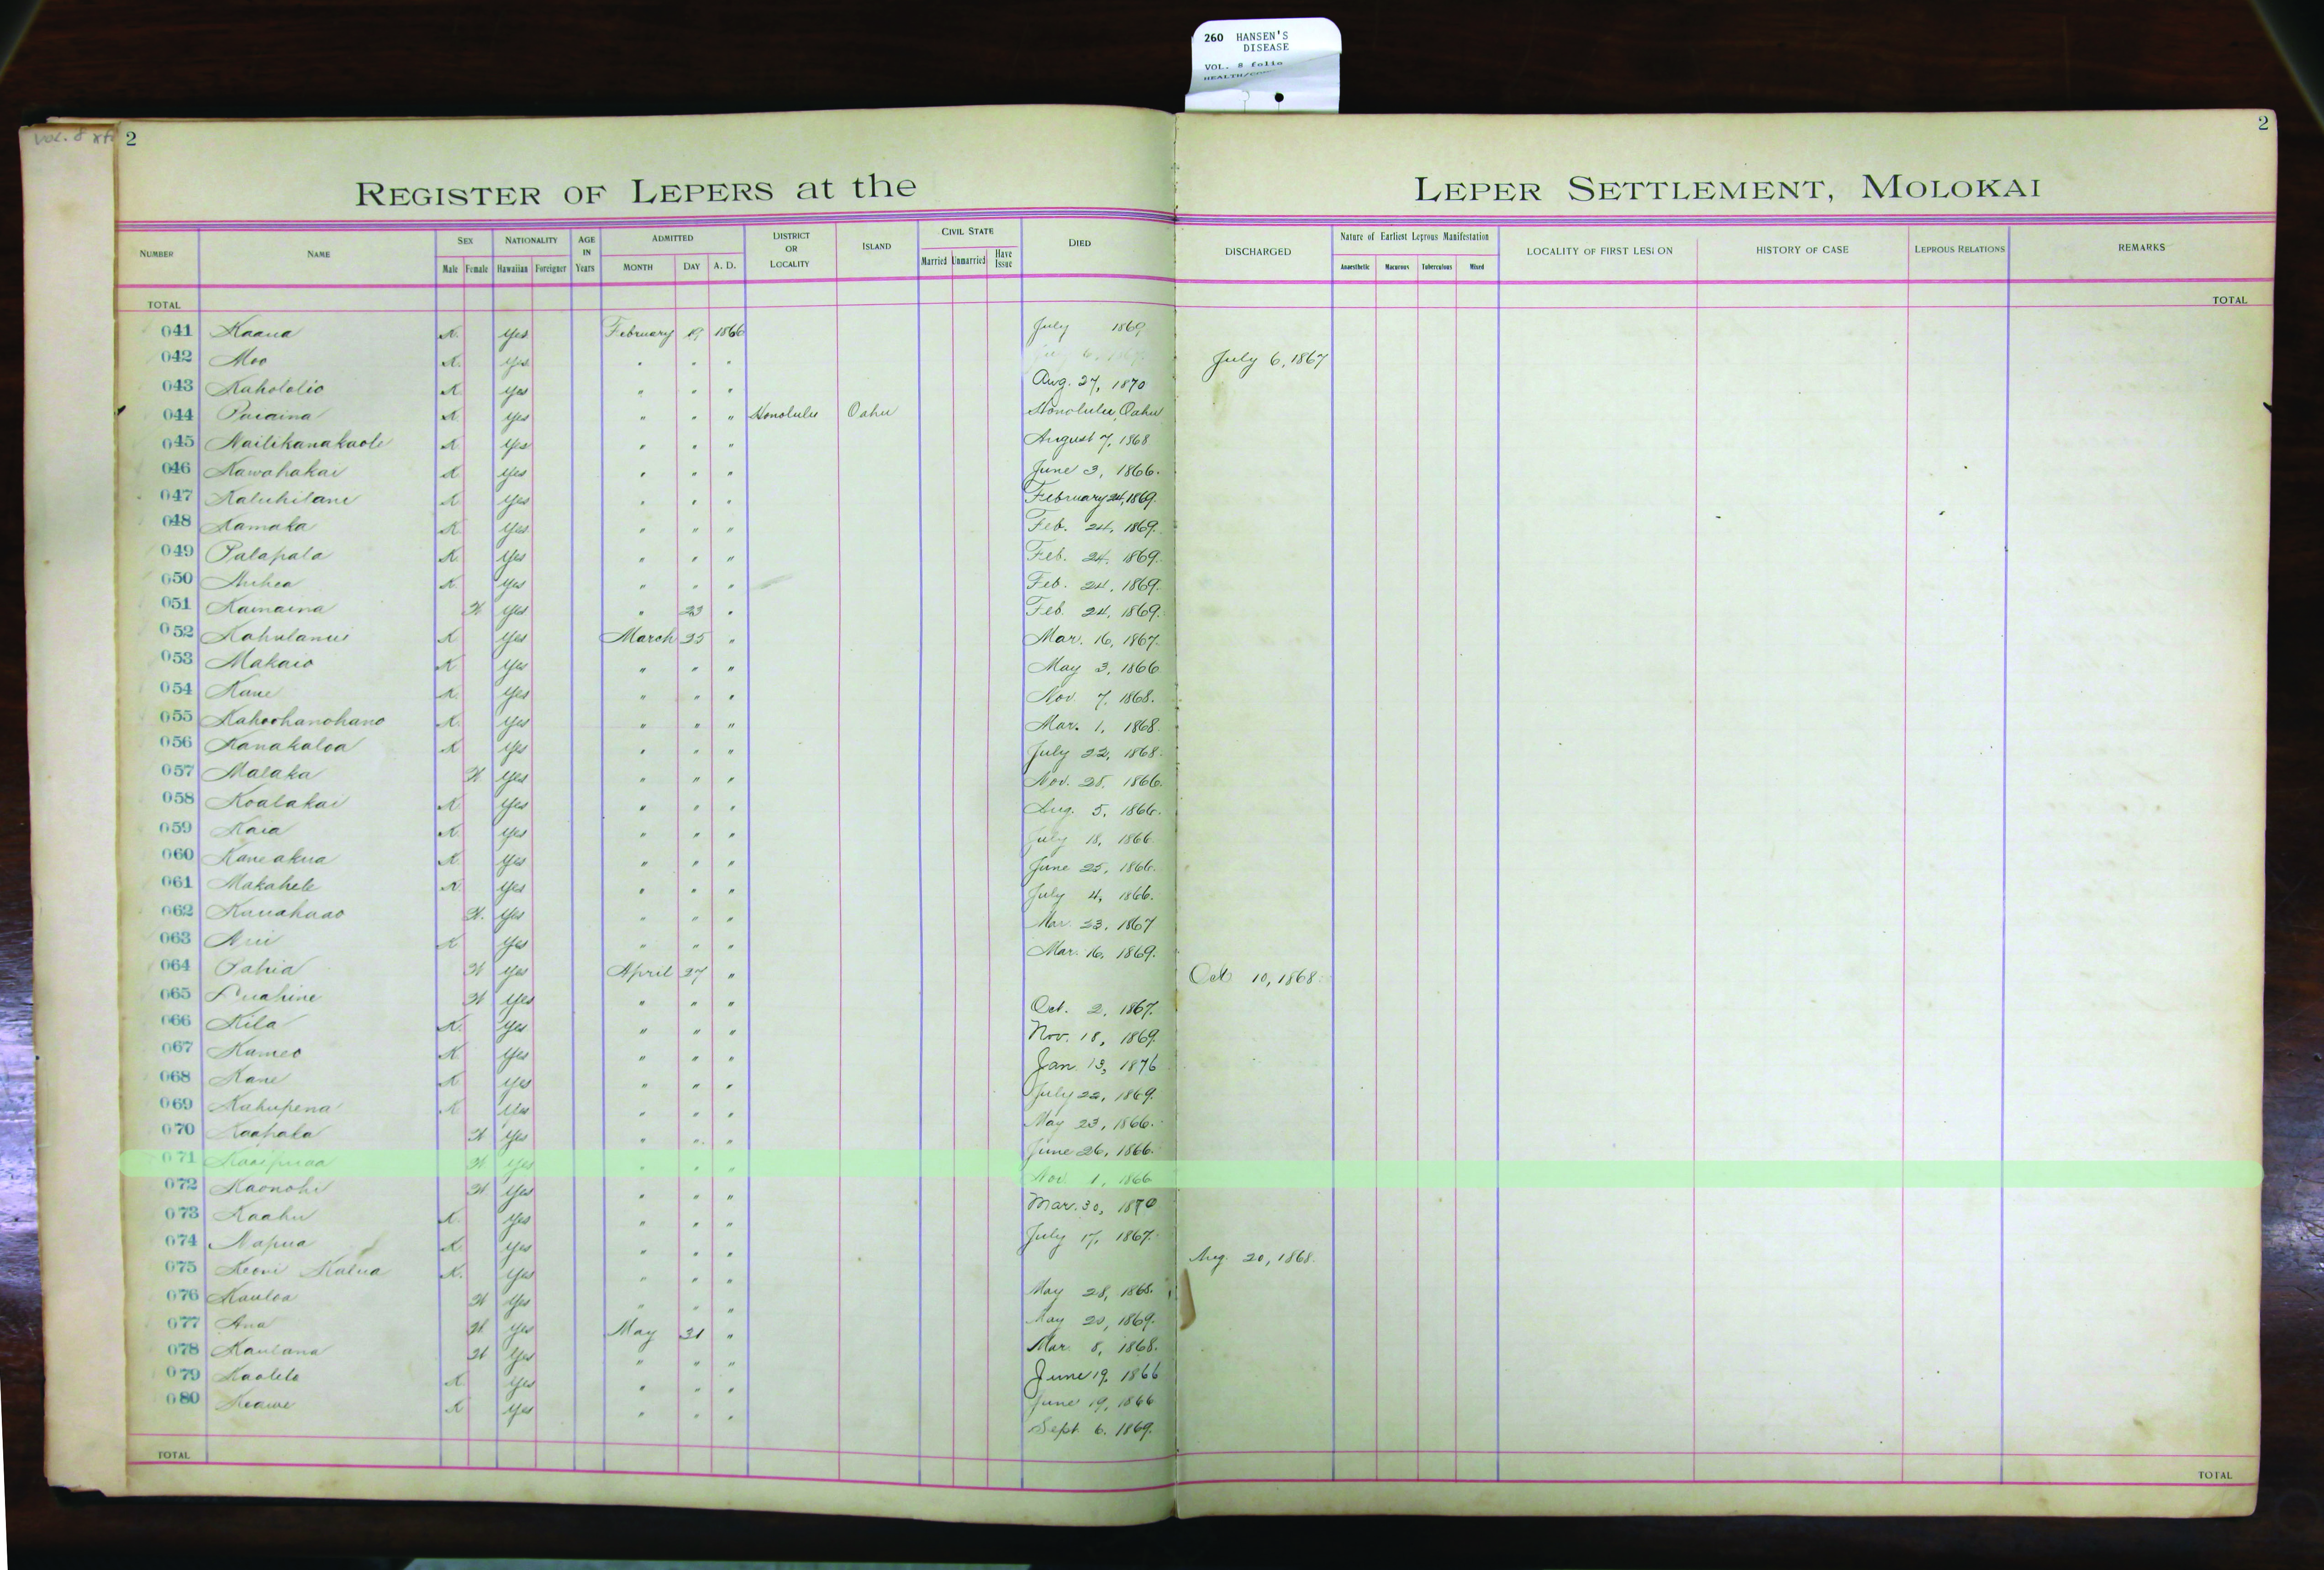 260 HANSEN'S
DISEASE
VOL. 8 folio
Vol. 8
2
2
REGISTER OF LEPERS at the LEPER SETTLEMENT, MOLOKAI
NUMBER NAME SEX NATIONALITY AGE IN Years ADMITTED DISTRICT OR LOCALITY ISLAND CIVIL STATE DIED DISCHARGED Nature of Earliest Leprous Manifestation LOCALITY OF FIRST LESION HISTORY OF CASE LEPROUS RELATIONS REMARKS
Male Female Hawaiian Foreigner MONTH DAY A. D. Married Unmarried Have Issue Anaesthetic Macurous Tuberculous Mixed
TOTAL TOTAL
041 Kaaua K. Yes February 19 1866 July 1869
042 Moo K. Yes " " " July 6, 1867
043 Kahololio K Yes " " " Aug. 27, 1870
044 Paiaina K Yes " " " Honolulu Oahu Honolulu, Oahu
045 Nailikanakaole K Yes " " " August 7, 1868
046 Kawahakai K Yes " " " June 3, 1866.
047 Kaluhilani K Yes " " " February 24, 1869.
048 Kamaka K Yes " " " Feb. 24, 1869.
049 Palapala K. Yes " " " Feb. 24, 1869.
050 Auhea K. Yes " " " Feb. 24, 1869.
051 Kamaina W Yes " 23 " Feb. 24, 1869.
052 Kahulanui K Yes March 25 " Mar. 16, 1867.
053 Makaio K Yes " " " May 3, 1866
054 Kane K. Yes " " " Nov. 7, 1868.
055 Kahoohanohano K. Yes " " " Mar. 1, 1868.
056 Kanakaloa K Yes " " " July 22, 1868.
057 Malaka W Yes " " " Nov. 28, 1866.
058 Koalakai K Yes " " " Aug. 5, 1866.
059 Kaia K. Yes " " " July 18, 1866.
060 Kaneakua K Yes " " " June 25, 1866.
061 Makahele K Yes " " " July 4, 1866.
062 Kauahaao W. Yes " " " Mar. 23, 1867
063 K Yes " " " Mar. 16, 1869.
064 Pahia W Yes April 27 " Oct 10, 1868.
065 Luahine W Yes " " " Oct. 2, 1867.
066 Kila K. Yes " " " Nov. 18, 1869.
067 Kameo K Yes " " " Jan. 13, 1876
068 Kane K Yes " " " July 22, 1869.
069 Kahupena K Yes " " " May 23, 1866.
070 Kaapala W Yes " " " June 26, 1866.
071 Kaaipuaa W Yes " " " Nov. 1, 1866
072 Kaonohi W Yes " " " Mar. 30, 1870
073 Kaahu K. Yes " " " July 17, 1867.
074 Napua K Yes " " " Aug. 20, 1868.
075 Keoni Kalua K. Yes " " " May 28, 1868.
076 Kauloa W Yes " " " May 20, 1869.
077 Ana W. Yes May 31 " Mar. 8, 1868.
078 Kaulana W Yes " " " June 19, 1866
079 Kaolelo K Yes " " " June 19, 1866
080 Keawe K Yes " " " Sept. 6. 1869.
TOTAL TOTAL